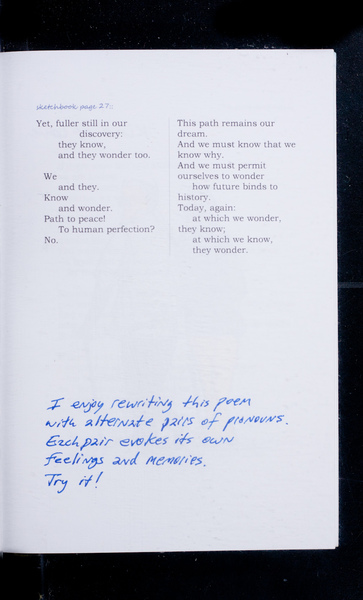 sketchbook page 27::
Yet, fuller still in our
discovery:
they know,
and they wonder too.
We
and they.
Know
and wonder.
Path to peace!
To human perfection?
No.
This path remains our
dream.
And we must know that we
know why.
And we must permit
ourselves to wonder
how future binds to
history.
Today, again:
at which we wonder,
they know;
at which we know,
they wonder.
I enjoy rewriting this poem
with alternate pairs of pronouns.
Each pair evokes its own
feelings and memories.
Try it!